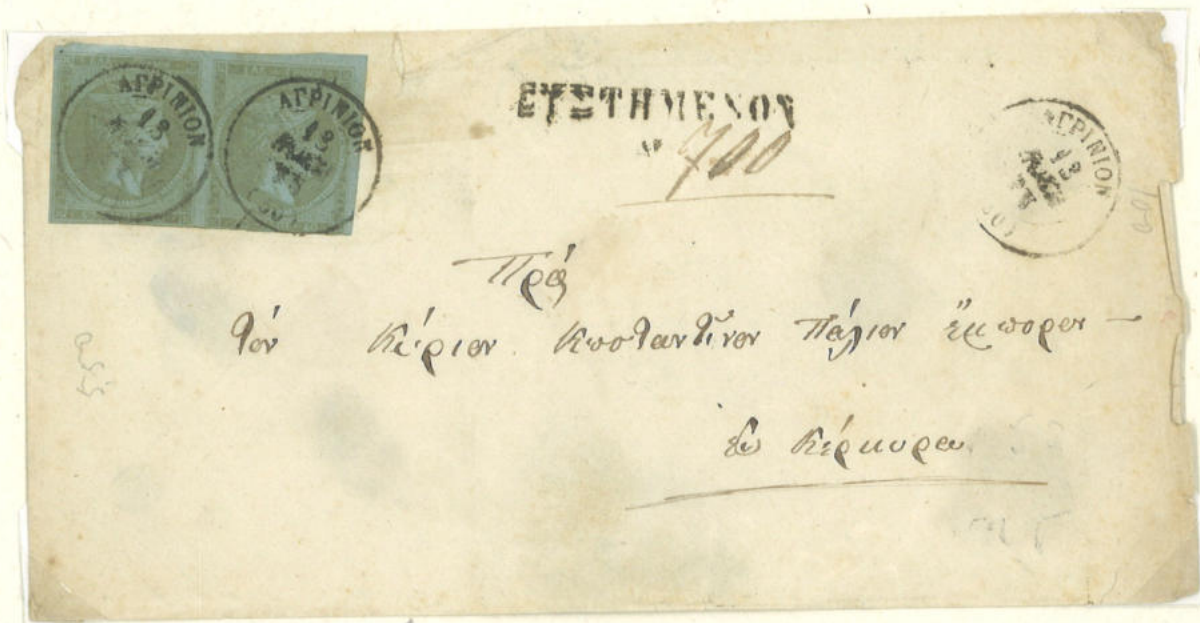 ΑΓΡΙΝΙΟΝ
18
ΑΓΡΙΝΙΟΝ
18
(50)
ΣΥΣΤΗΜΕΝΟΝ
700
ΑΓΡΙΝΙΟΝ
18
Πρός
τόν Κύριον Κωσταντῖνον Πάλιον ἔμπορον —
εἰς Κέρκυρα